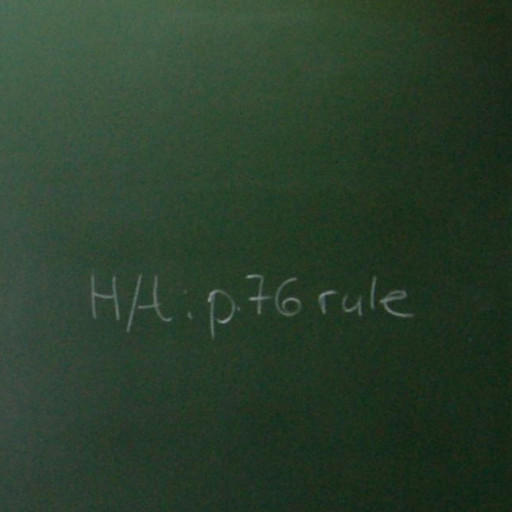 H/t: p.76 rule